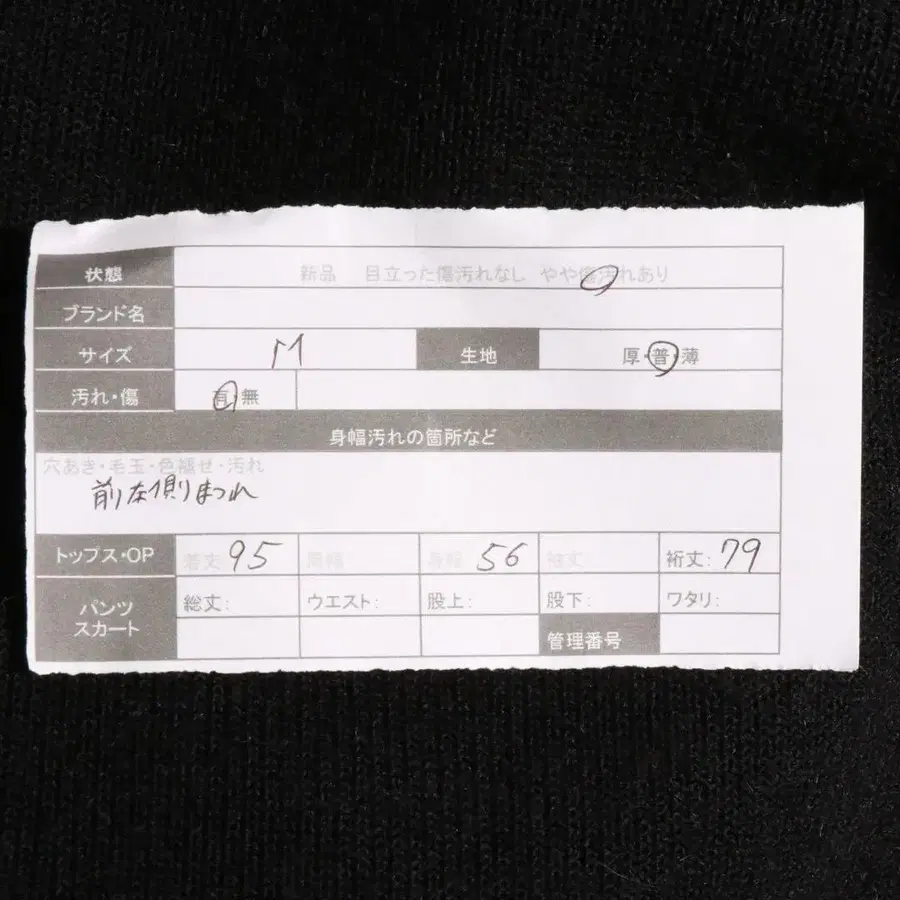 状態 新品 目立った傷汚れなし やや傷汚れあり
ブランド名
サイズ M 生地 厚・普・薄
汚れ・傷 有・無
身幅汚れの箇所など
穴あき・毛玉・色褪せ・汚れ
前左側まつれ
トップス・OP 着丈 95 肩幅 身幅 56 袖丈 裄丈: 79
パンツ スカート 総丈: ウエスト: 股上: 股下: ワタリ:
管理番号